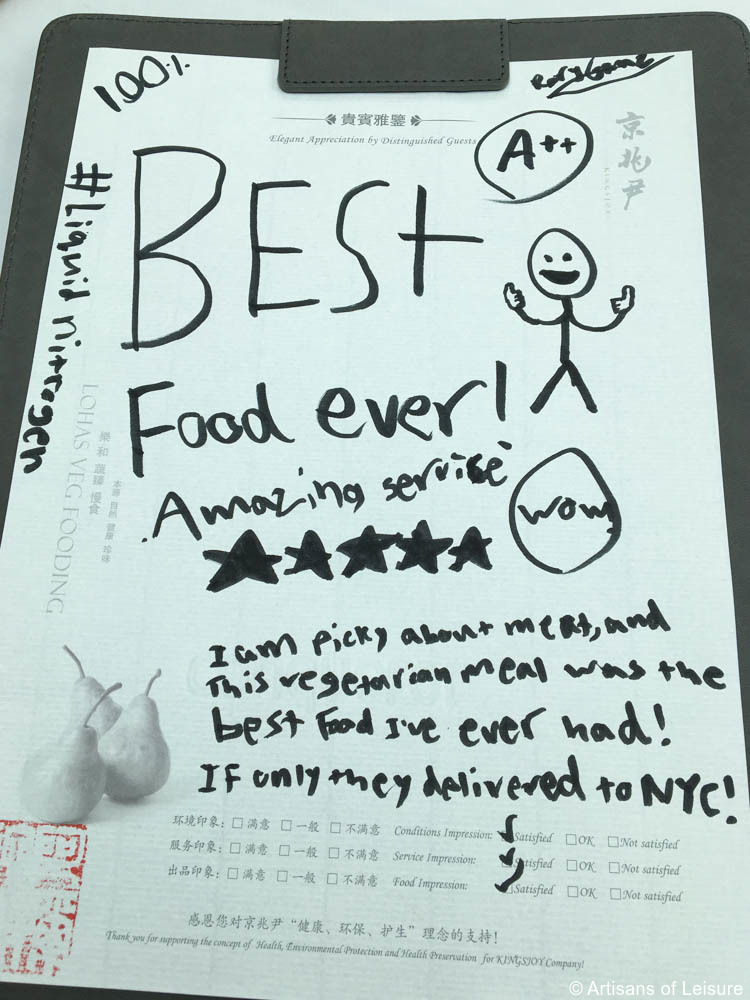 100%
貴賓雅鑒
Elegant Appreciation by Distinguished Guests
京兆尹
KINGSJOY
A++
BEST
#Liquid nitrogen
Food ever!
Amazing service
wow
LOHAS VEG FOODING
樂和 蔬臻 慢食
本源 自然 健康 珍味
I am picky about meat, and
This vegetarian meal was the
best Food I've ever had!
If only they delivered to NYC!
环境印象: □ 满意 □ 一般 □ 不满意 Conditions Impression: Satisfied □ OK □ Not satisfied
服务印象: □ 满意 □ 一般 □ 不满意 Service Impression: Satisfied □ OK □ Not satisfied
出品印象: □ 满意 □ 一般 □ 不满意 Food Impression: Satisfied □ OK □ Not satisfied
感恩您对京兆尹“健康、环保、护生”理念的支持!
Thank you for supporting the concept of Health, Environmental Protection and Health Preservation for KINGSJOY Company!
© Artisans of Leisure